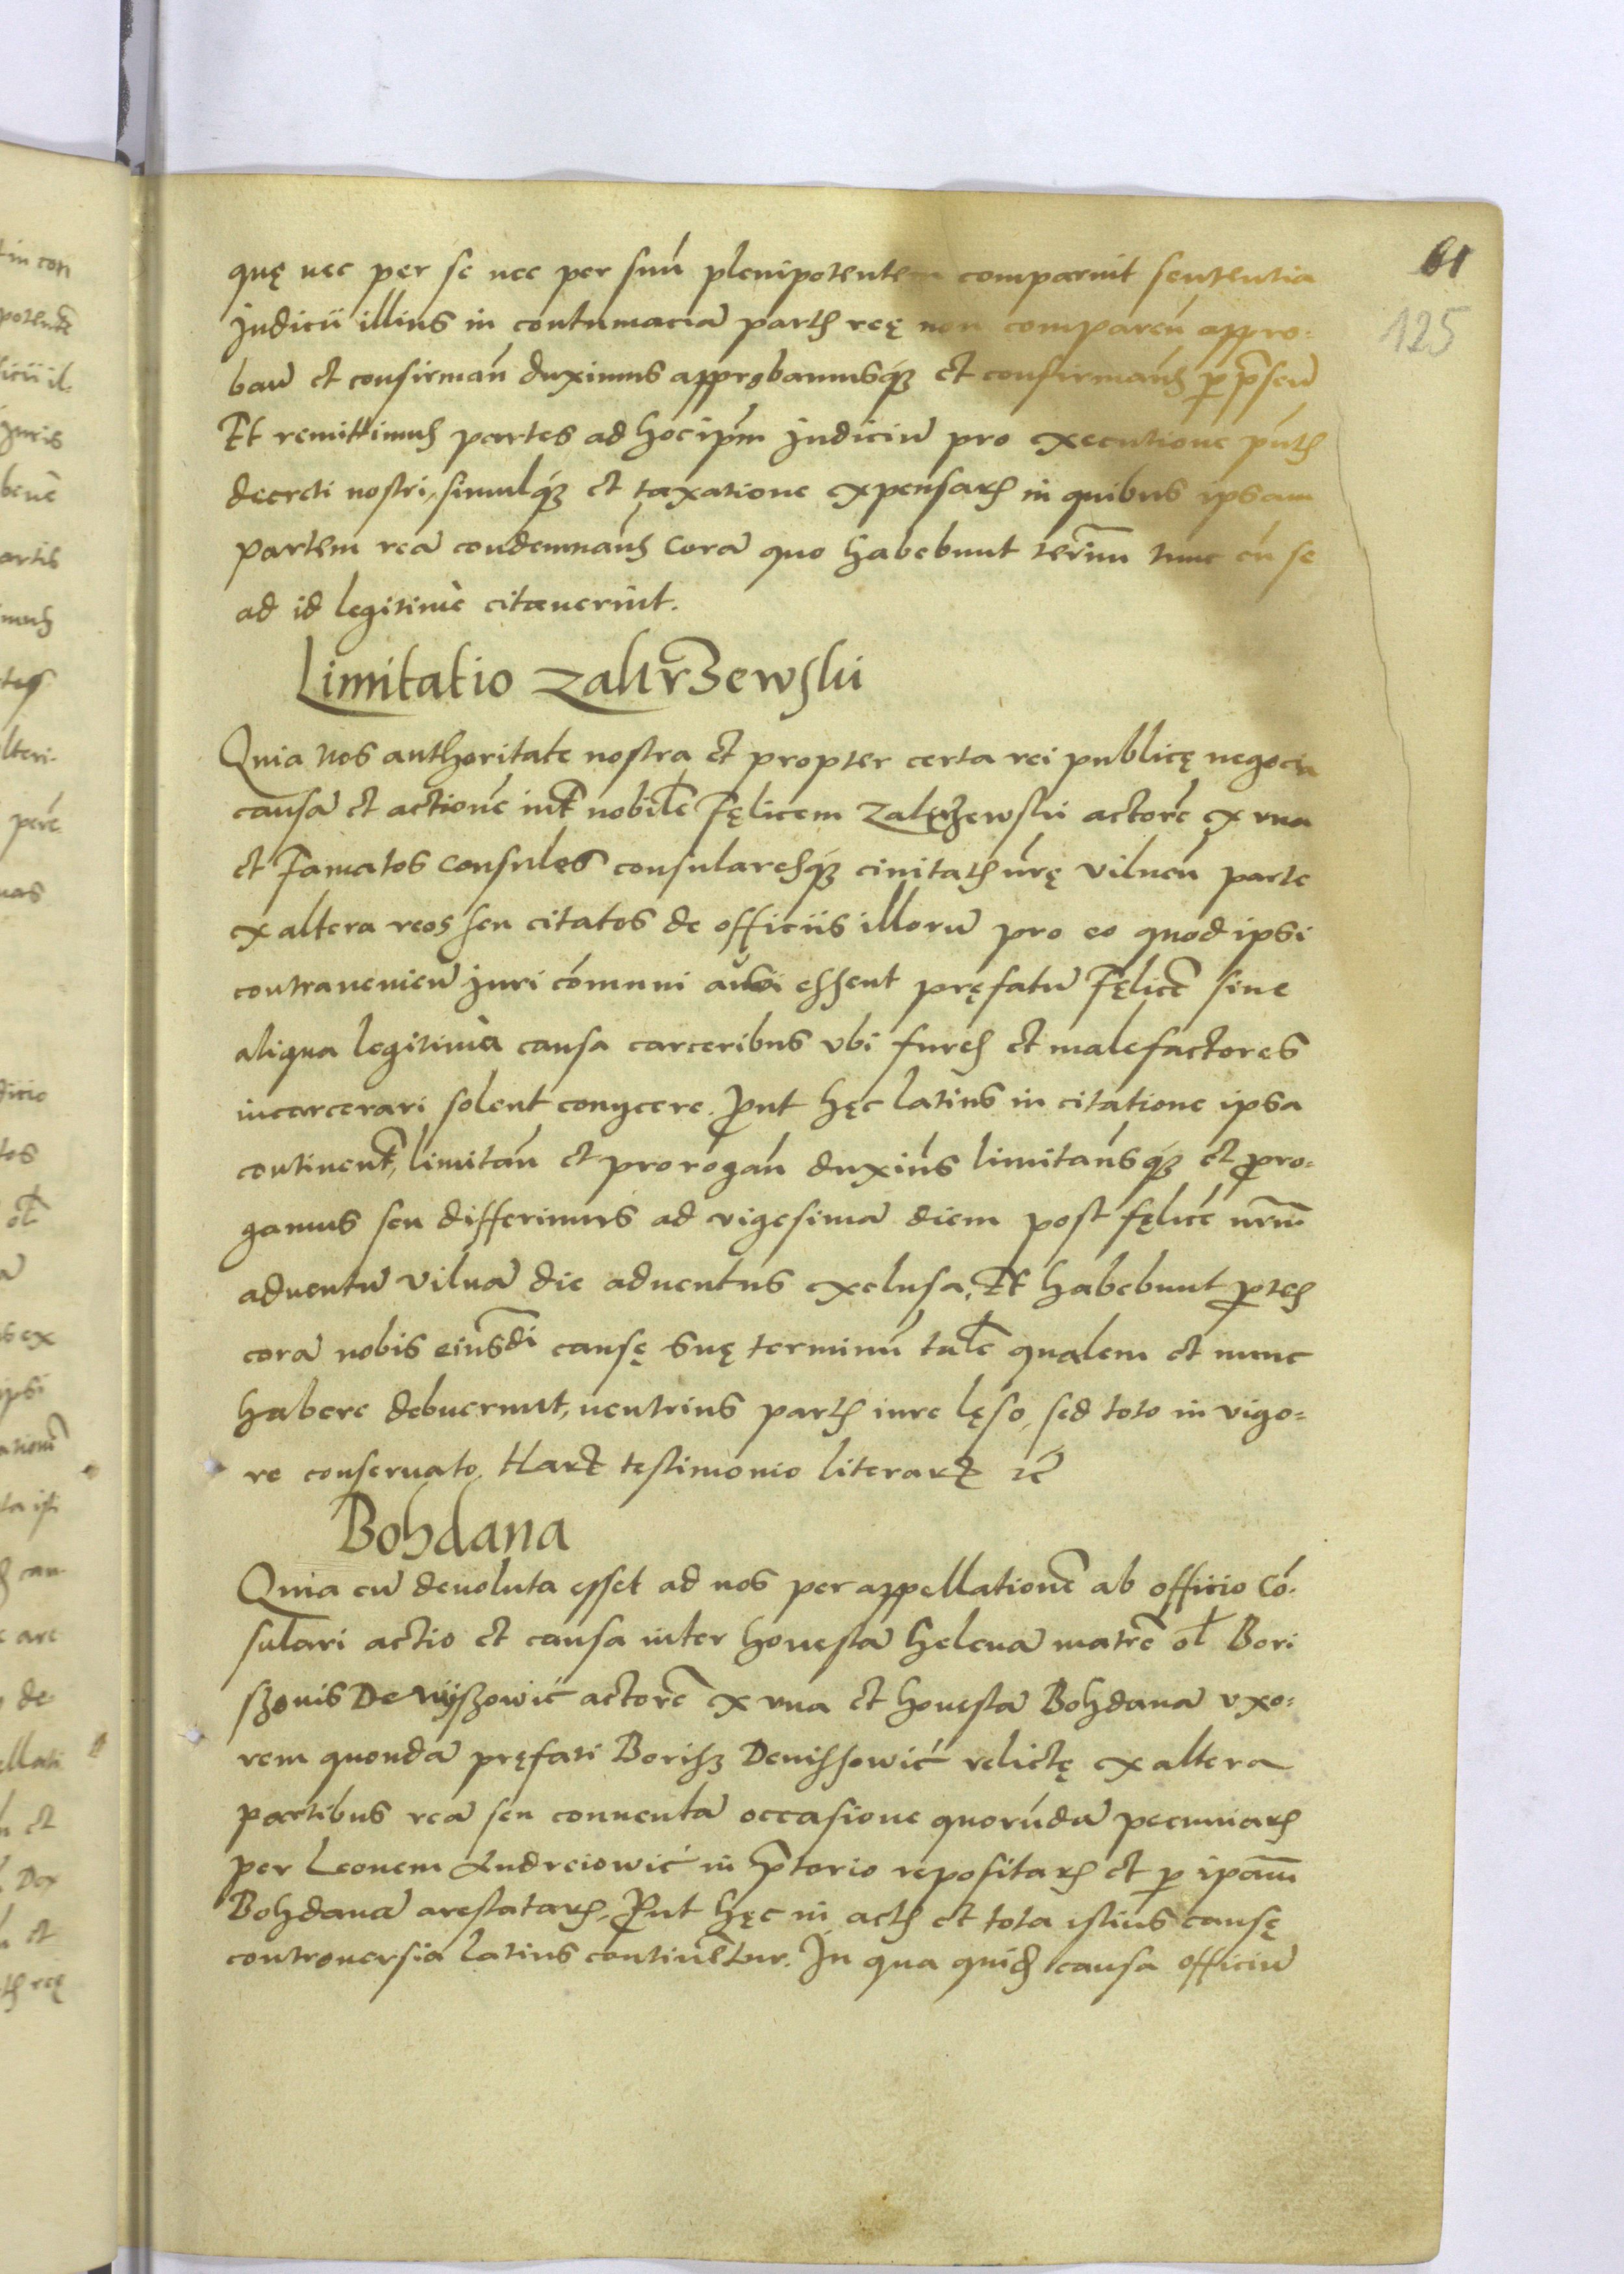 61
125
quę nec per se nec per suũ plenipotentem comparuit sententia
Judicii illius in contumaciã partis reę non compareñ appro:
bañ et confirmañ duximus approbamusq́ꝫ et confirmam̃s ꝑ p̃señ
Et remittimus partes ad hoc ip̃m Judiciũ pro executione pñtis
decreti nostri, simulq́ꝫ et taxatione expensarꝫ in quibus ipsam
partem reã condemnam̃s Corã quo habebunt termĩnũ tunc cũ se
ad id legitimè citauerint.
Limitatio Zakrzewski
Quia Nos authoritate nostra et propter certa rei publicę negocia
causã et actionẽ int̃ nobilẽ Fęlicem Zakrzewski actorẽ ex vna
et Famatos Consules consularesq́ꝫ ciuitatis nr̃ę Vilneñ parte
ex altera reos seu citatos de officiis illorũ pro eo quod ipsi
contraueñieñ Juri cõmuni ausi essent pręfatũ Fęlicẽ sine
aliqua legitima causa carceribus vbi fures et malefactores
incarcerari solent conycere. Prout hęc latius in citatione ipsa
continent̃, limitañ et prorogañ duxim̃s limitam̃sq́ꝫ et proro:
gamus seu differimus ad vigesimã diem post fęlicẽ nr̃m
aduentũ Vilnã die aduentus exclusa, Et habebunt partes
corã nobis eiusdi causę suę terminũ talẽ qualem et nunc
habere debuerunt, neutrius partis iure lęso, sed toto in vigo=
re conseruato, Harꝫ testimonio literarꝫ ꝛc̃
Bohdana
Quia cũ deuoluta esset ad nos per appellationẽ ab officio Cõ.
sulari actio et causa inter honestã Helenã matrẽ ol̃ Bori
szonis Denyszowic actorẽ ex vna et honestã Bohdanã vxo:
rem quondã pręfati Borisz Denissowić relictę ex altera
partibus reã seu conuentã occasione quorũdã pecuniarꝫ
per Leonem Andreiowić in p̃torio repositarꝫ et ꝑ ipsam̃
Bohdanã arestatarꝫ, Prout hęc in actis et tota istius causę
controuersia latius continẽtur. In qua quid̃ causa officiũ